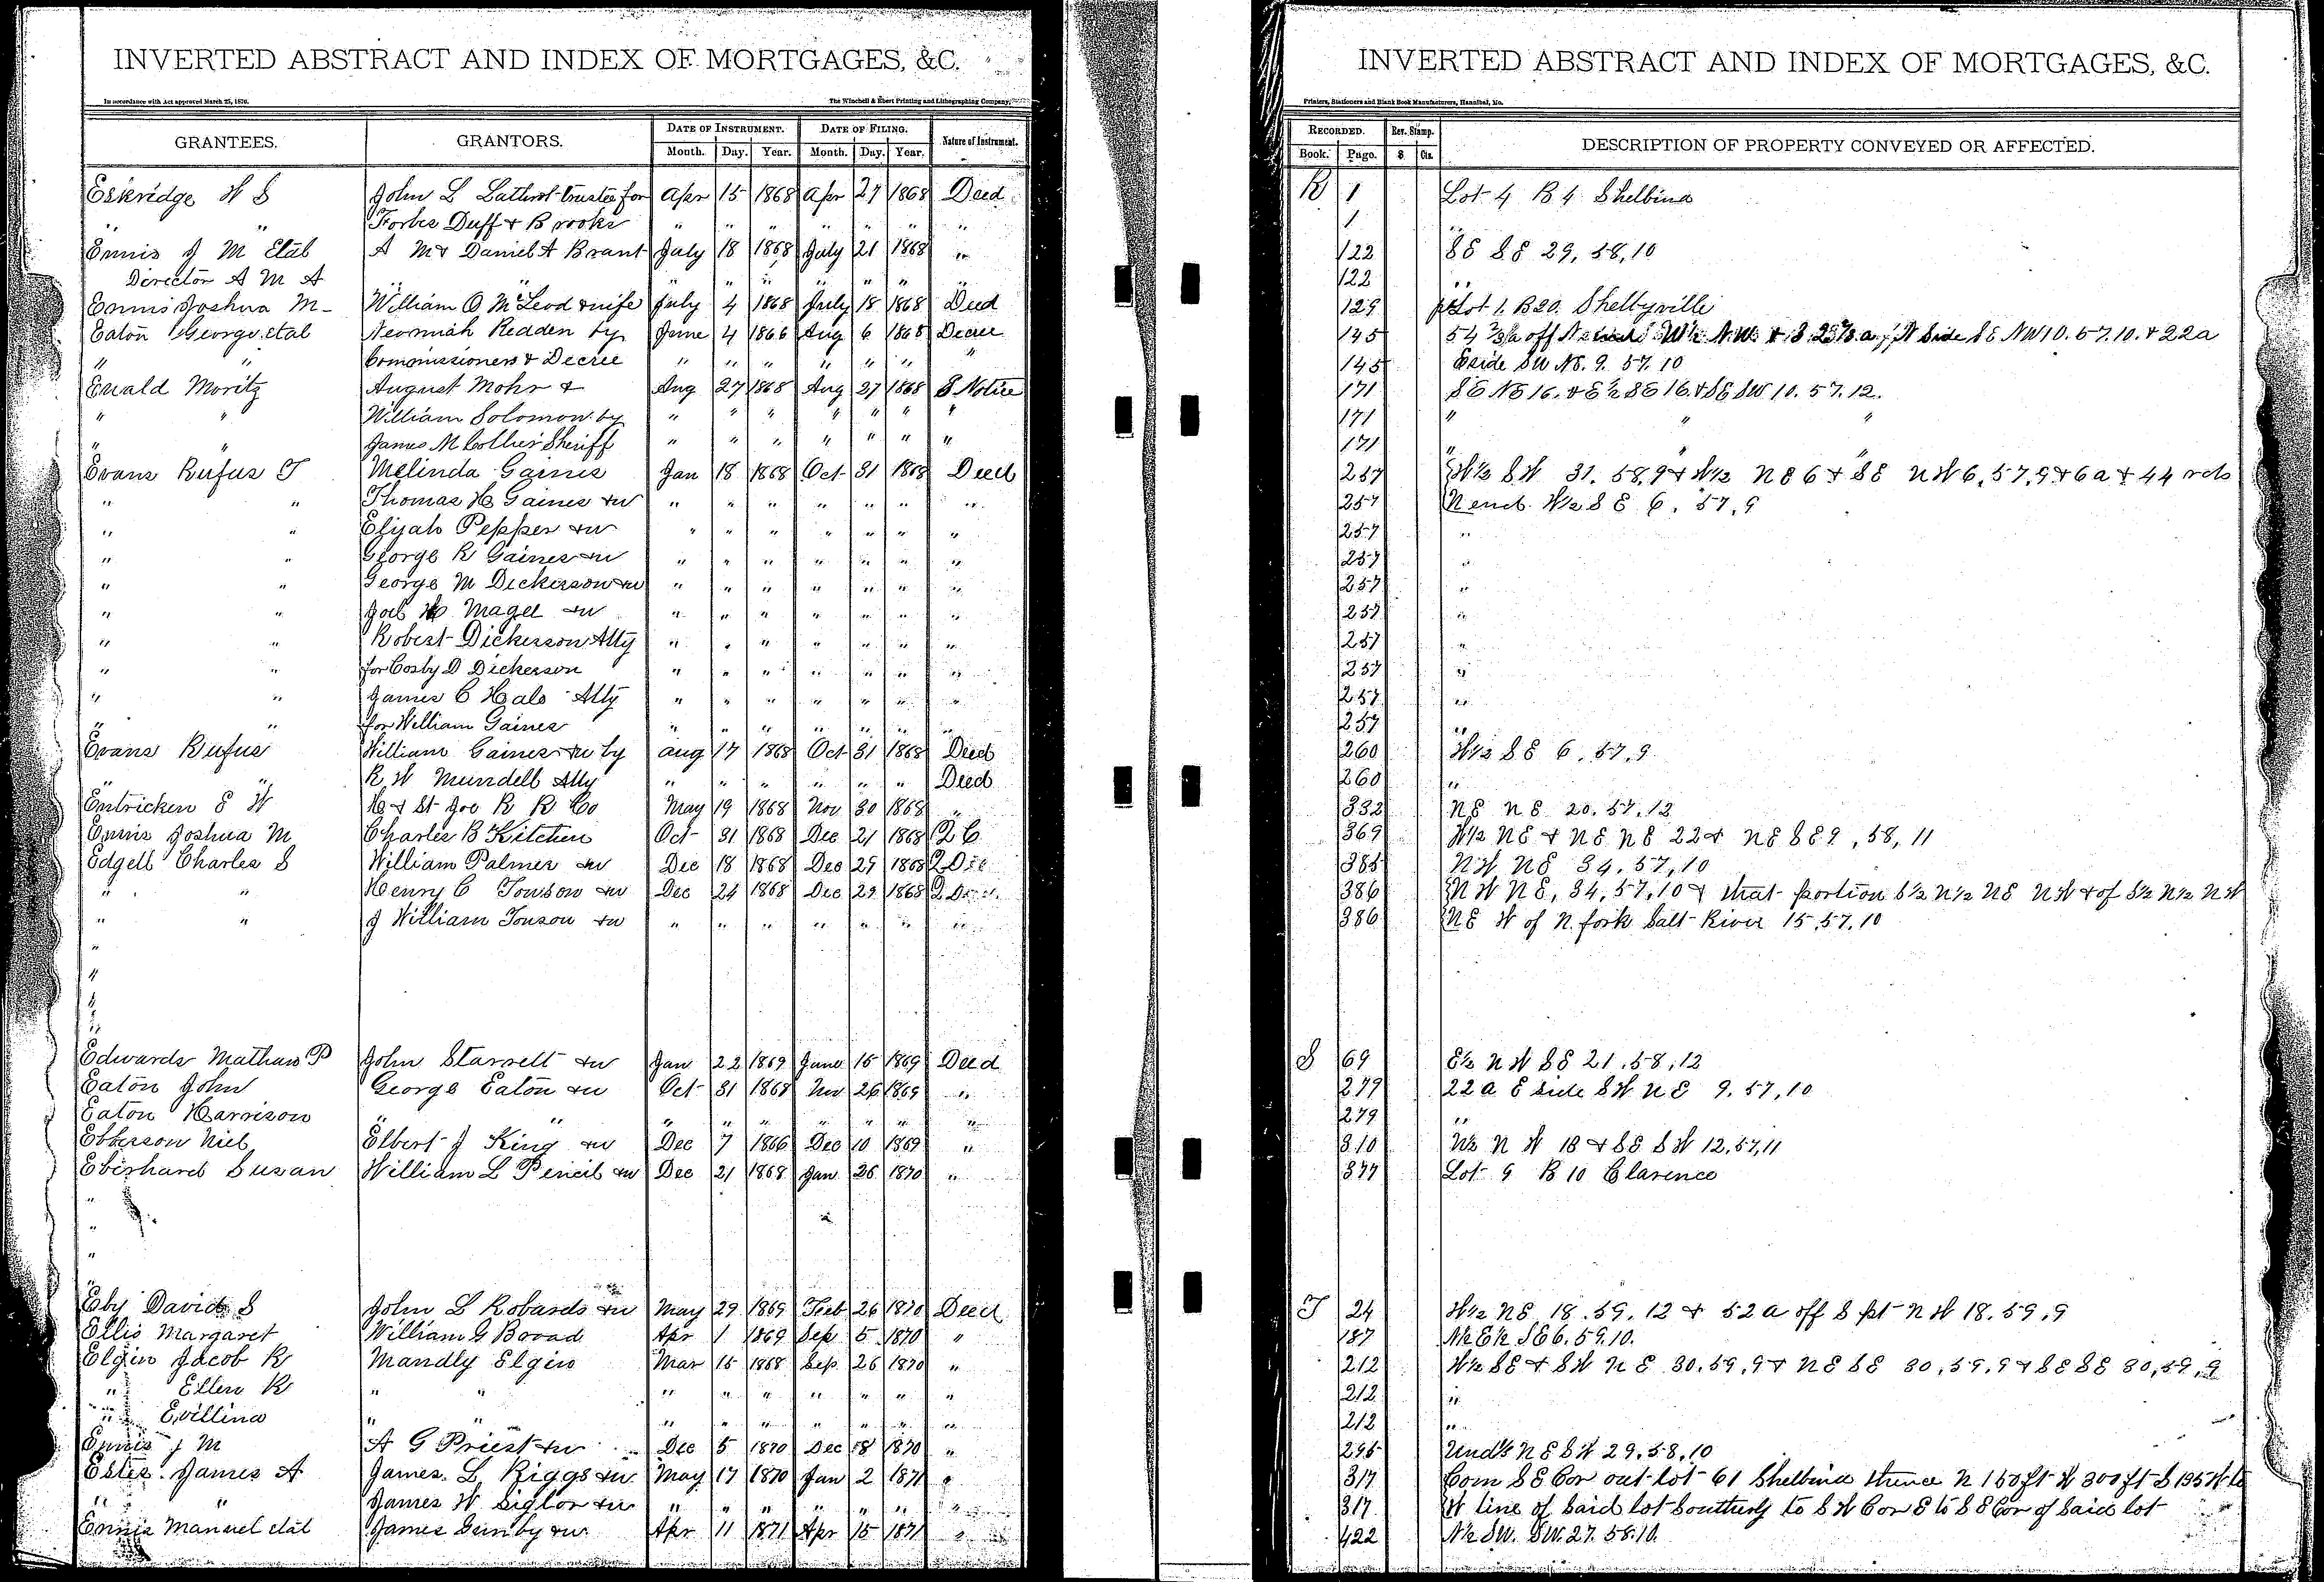 INVERTED ABSTRACT AND INDEX OF MORTGAGES, &C.
In accordance with Act approved March 25, 1870. The Winchell & Ebert Printing and Lithographing Company,
GRANTEES. GRANTORS. DATE OF INSTRUMENT. DATE OF FILING. Nature of Instrument.
Month. Day. Year. Month. Day. Year.
Eskridge W S John L Lathrop trustee for Apr 15 1868 Apr 27 1868 Deed
" " Forbes Duff & Brooks " " " " " " "
Ennis J M Etal A M & Daniel A Brant July 18 1868 July 21 1868 "
Director A M A " " " " " " "
Ennis Joshua M William O McLeod & wife July 4 1868 July 18 1868 Deed
Eaton George etal Neomiah Redden by June 4 1866 Aug 6 1868 Decree
" " Commissioners & Decree " " " " " " "
Ewald Moritz August Mohr & Aug 27 1868 Aug 27 1868 S Notice
" " William Solomon by " " " " " " "
" " James M Collier Sheriff " " " " " " "
Evans Rufus T Melinda Gaines Jan 18 1868 Oct 31 1868 Deed
" " Thomas H Gaines & w " " " " " " "
" " Elijah Pepper & w " " " " " " "
" " George R Gaines & w " " " " " " "
" " George M Dickerson & w " " " " " " "
" " Magee & w " " " " " " "
" " Robert Dickerson Atty " " " " " " "
" " for Cosby D Dickerson " " " " " " "
" " James C Hale Atty " " " " " " "
" " for William Gaines " " " " " " "
Evans Rufus William Gaines & w by Aug 17 1868 Oct 31 1868 Deed
" " R W Mundell Atty " " " " " " Deed
Entricken S W H & St Joe R R Co May 19 1868 Nov 30 1868 "
Ennis Joshua M Charles B Kitchen Oct 31 1868 Dec 21 1868 Q C
Edgell Charles S William Palmer & w Dec 18 1868 Dec 29 1868
" " Henry C Towson & w Dec 24 1868 Dec 29 1868
" " J William Touson & w " " " " " " "
"
"
"
"
Edwards Mathew P John Starrett & w Jan 22 1869 June 15 1869 Deed
Eaton John George Eaton & w Oct 31 1868 Nov 26 1869 "
Eaton Harrison " " " " " " " " "
Ebberson Niel Elbert J King & w Dec 7 1866 Dec 10 1869 "
Eberhard Susan William L Pencil & w Dec 21 1868 Jan 26 1870 "
"
"
"
Eby David S John L Robards & w May 29 1869 Feb 26 1870 Deed
Ellis Margaret William G Broad Apr 1 1869 Sep 5 1870 "
Elgin Jacob R Mandly Elgin Mar 15 1868 Sep 26 1870 "
" Ellen R " " " " " " " " "
" Evillina " " " " " " " " "
Ennis J M A G Priest & w Dec 5 1870 Dec 18 1870 "
Estes James A James L Riggs & w May 17 1870 Jan 2 1871 "
" " James W Sigler & w " " " " " " "
Ennis Manuel etal James Gunby & w Apr 11 1871 Apr 15 1871 "
INVERTED ABSTRACT AND INDEX OF MORTGAGES, &C.
Printers, Stationers and Blank Book Manufacturers, Hannibal, Mo.
RECORDED. Rev. Stamp. DESCRIPTION OF PROPERTY CONVEYED OR AFFECTED.
Book. Page. $ Cts.
R 1 Lot 4 B 4 Shelbina
1 "
122 SE SE 29, 58, 10
122 "
129 pt Lot 1. B 20. Shelbyville
145 54 2/3 a off W½ N.W. & S 23⅓ a N Side SE NW 10. 57. 10. & 22a
145 E side SW NE. 9. 57. 10
171 SE NE 16. & E½ SE 16. & SE SW 10. 57. 12.
171 " " "
171 " " "
257 W½ SW 31. 58. 9 & W½ NE 6 & SE NW 6, 57, 9 & 6a & 44 rds
257 N end W½ SE 6. 57, 9
257 "
257 "
257 "
257 "
257 "
257 "
257 "
257 "
260 W½ SE 6. 57. 9
260 "
332 NE NE 20. 57. 12
369 W½ NE & NE NE 22 & NE SE 9, 58, 11
385 NW NE 34. 57, 10
386 NW NE, 34, 57, 10 & that portion S½ N½ NE NW & of S½ N½ NW
386 NE W of N. fork Salt River 15. 57. 10
S 69 E½ NW SE 21. 58. 12
279 22 a E side SW NE 9. 57, 10
279 "
310 W½ NW 13 & SE SW 12, 57, 11
377 Lot 9 B 10 Clarence
T 24 W½ NE 18. 59. 12 & 52 a off S pt NW 18. 59, 9
187 N½ E½ SE 6. 59. 10.
212 W½ SE & SW NE 30. 59, 9 & NE SE 30, 59, 9 & SE SE 30, 59, 9
212 "
212 "
295 NE SW 29. 58, 10
317 Com SE Cor out lot 61 Shelbina thence N 150 ft W 300 ft S 135 ft to
317 W line of said lot Southerly to SW Cor E to SE Cor of said lot
422 N½ SW. SW. 27. 58. 10.